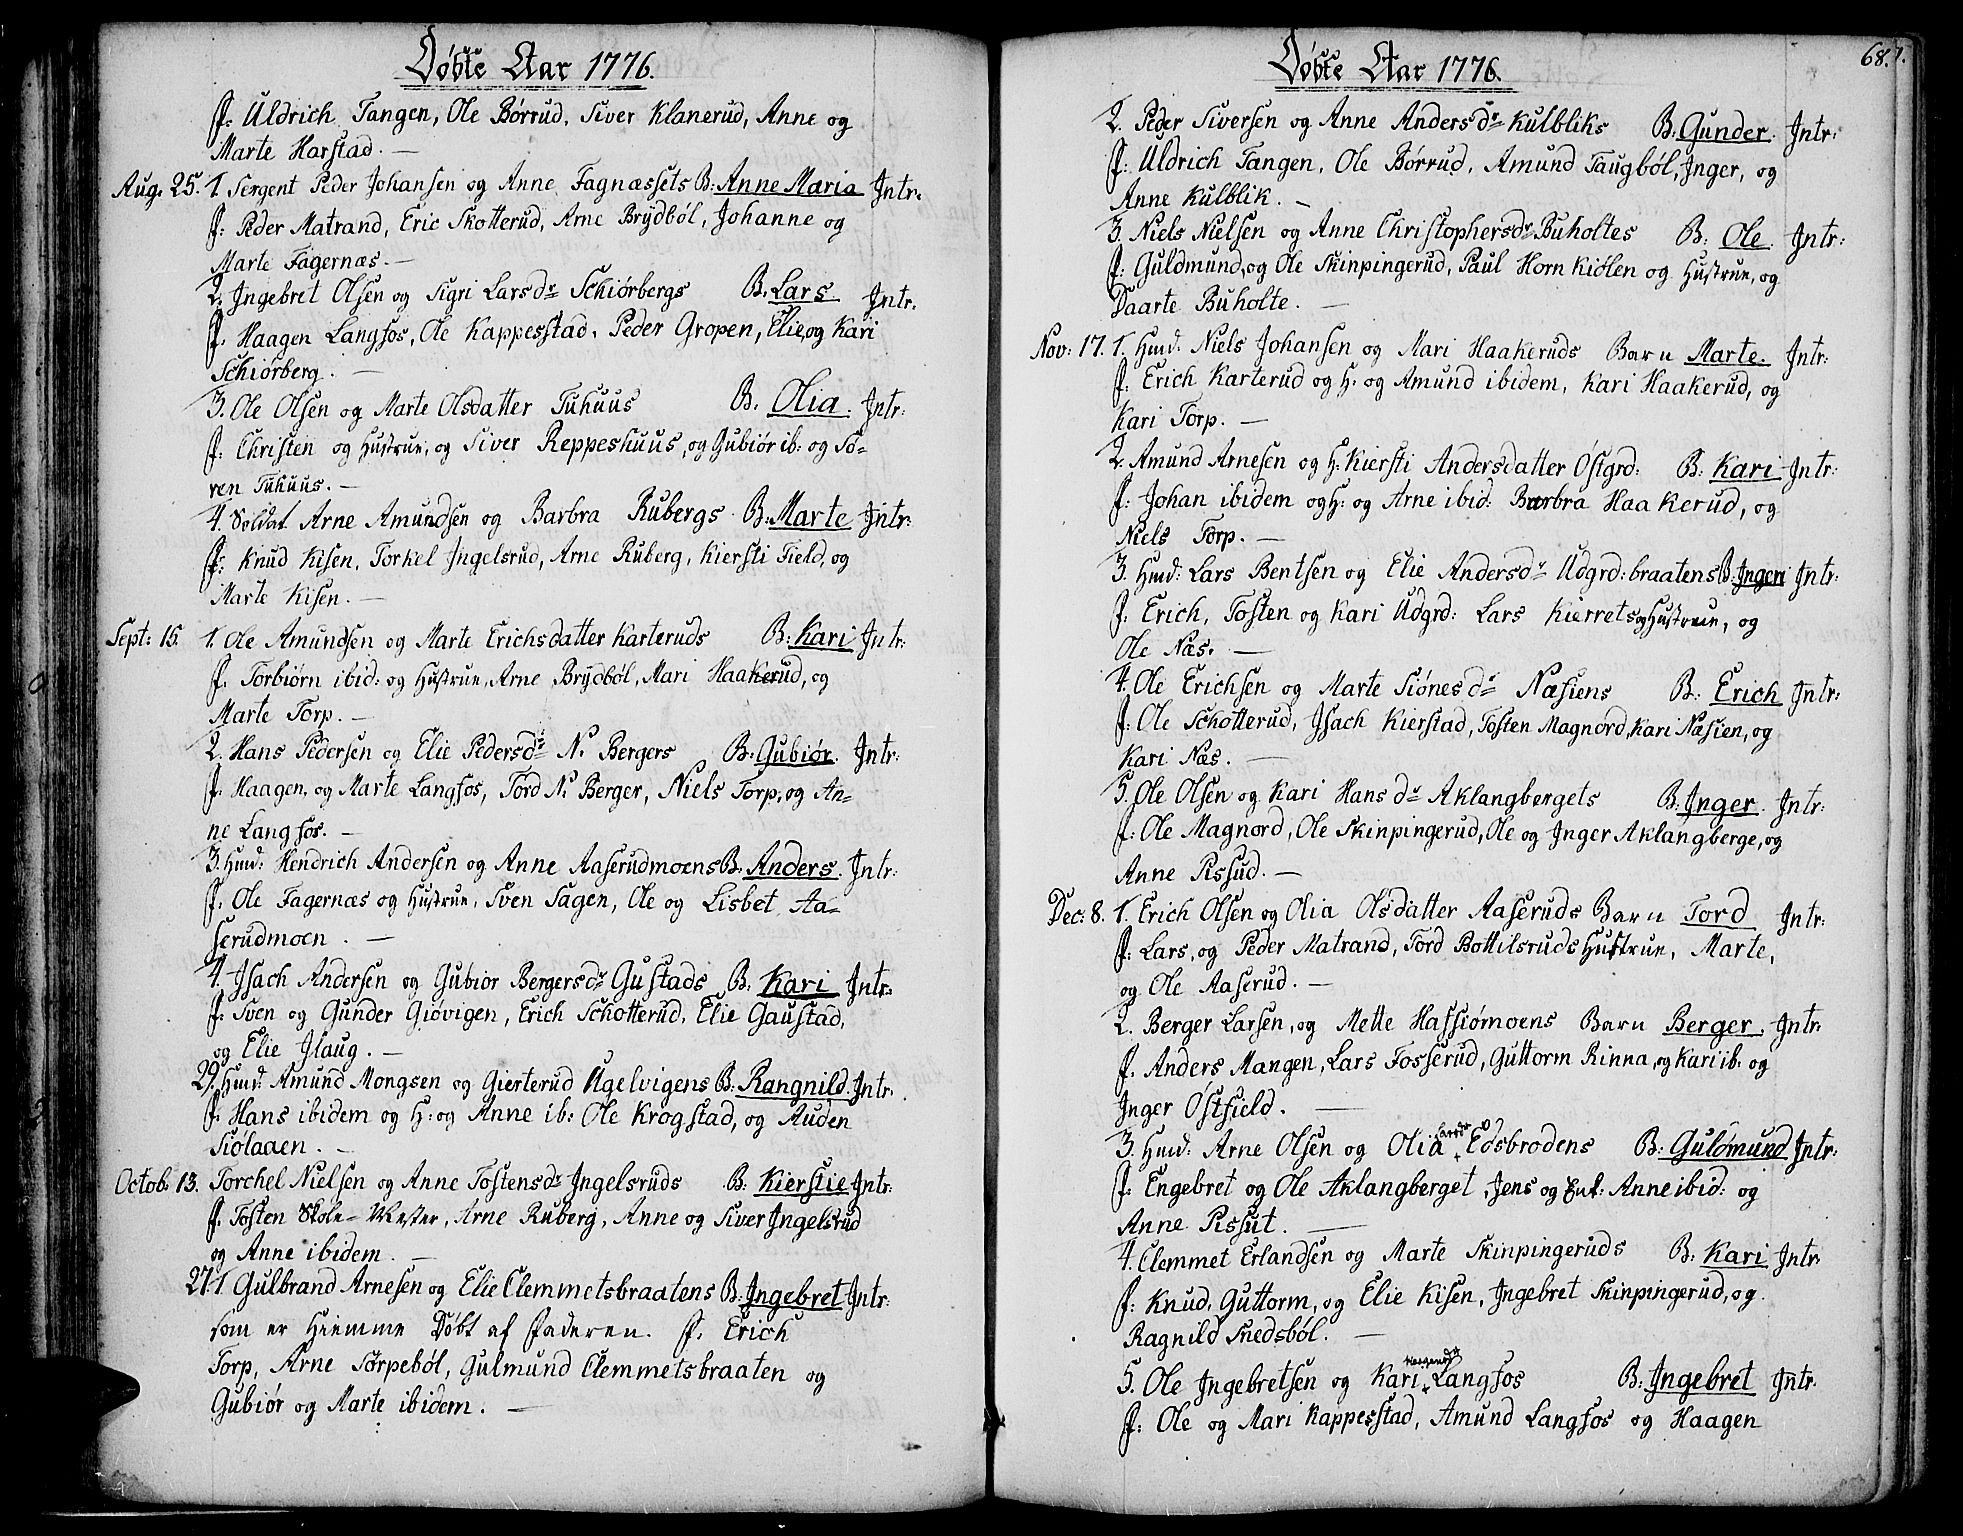 Døbte Aar 1776.
F: Uldrich Tangen, Ole Børrud, Siver Klanerud, Anne og
Marte Harstad. —
Aug. 25. 1. Sergent Peder Johansen og Anne Fagnæssets B: Anne Maria Intr:
F: Peder Matrand, Eric Skotterud, Arne Brydbøl, Johanne og
Marte Fagernæs. —
2. Ingebret Olsen og Sigri Larsdr Schiørbergs B. Lars Intr:
F. Haagen Langfos, Ole Kappesstad, Peder Gropen, Elie, og Kari
Schiørberg. —
3. Ole Olsen og Marte Olsdatter Tuhuus B. Olia. Intr:
F: Christen og Hustrue, og Siver Reppeshuus, og Gubiør ib: og So-
ren Tuhuus. —
4. Soldat Arne Amundsen og Barbra Rubergs B: Marte Intr:
F: Knud Kisen, Torkel Ingelsrud, Arne Ruberg, Kiersti Field, og
Marte Kisen. —
Sept: 15. 1. Ole Amundsen og Marte Erichsdatter Karteruds B: Kari Intr:
F. Torbiørn ibid: og Hustrue, Arne Brydbøl, Mari Haakerud, og
Marte Torp. —
2. Hans Pedersen og Elie Pedersdr N. Bergers B: Gubiør. Intr:
F: Haagen, og Marte Langfos, Tord N. Berger, Niels Torp, og An-
ne Langfos. —
3. Hmd: Hendrich Andersen og Anne Aaserudmoens B. Anders. Intr:
F: Ole Fagernæs og Hustrue, Sven Sagen, Ole og Lisbet Aa-
serudmoen. —
4. Isach Andersen og Gubiør Bergersdr Gustads B. Kari Intr:
F: Sven og Gunder Giøvigen, Erich Schotterud, Elie Gaustad,
og Elie Ilaug. —
29. Hmd: Amund Mongsen og Gierterud Ugelvigens B: Rangnild. Intr:
F: Hans ibidem og H: og Anne ib: Ole Krogstad, og Auden
Siølaaen. —
Octob: 13. Torchel Nielsen og Anne Tostensdr Ingelsruds B: Kierstie Intr:
F. Tosten Skole-Mester, Arne Ruberg, Anne og Siver Ingelsrud
og Anne ibidem. —
27. 1 Gulbrand Arnesen og Elie Clemmetsbraatens B: Ingebret Intr:
som er Hiemme Døbt af Faderen. F. Erich
Torp, Arne Sørpebøl, Gulmund Clemmetsbraaten og
Gubiør og Marte ibidem. —
Døbte Aar 1776.
68.
2. Peder Siversen og Anne Andersdr Kulbliks B: Gunder. Intr:
F: Uldrich Tangen, Ole Børrud, Amund Taugbøl, Inger, og
Anne Kulblik. —
3. Niels Nielsen og Anne Christophersdr Buholtes B: Ole. Intr:
F: Guldmund, og Ole Skinpingerud, Paul Hornkiølen og Hustrue, og
Daarte Buholte. —
Nov: 17. 1. Hmd: Niels Johansen og Mari Haakeruds Barn Marte. Intr:
F: Erich Karterud og H: og Amund ibidem, Kari Haakerud, og
Kari Torp. —
2. Amund Arnesen og H: Kiersti Andersdatter Østgrd: B: Kari Intr:
F: Johan ibidem og H: og Arne ibid: Barbra Haakerud, og
Niels Torp. —
3. Hmd: Lars Bentsen og Elie Andersdr Udgrd: braatens B: Ingeri Intr:
F: Erich, Tosten og Kari Udgrd: Lars Kierrets og Hustrue, og
Ole Næs. —
4. Ole Erichsen og Marte Siønesdr Næsiens B: Erich Intr:
F: Ole Schotterud, Isach Kierstad, Tosten Magnord, Kari Næsien, og
Kari Næs. —
5. Ole Olsen og Kari Hansdr Aklangbergets B: Inger. Intr:
F: Ole Magnord, Ole Skinpingerud, Ole og Inger Aklangberge, og
Anne Pissud. —
Dec: 8. 1. Erich Olsen og Olia Olsdatter Aaseruds Barn Tord Intr:
F: Lars, og Peder Matrand, Tord Bottilsruds Hustrue, Marte,
og Ole Aaserud. —
2. Berger Larsen, og Mette Hassiømoens Barn Berger. Intr:
F. Anders Mangen, Lars Fosserud, Guttorm Rinna, og Kari ib: og
Inger Østfield. —
3. Hmd: Arne Olsen og Olia Edsbrodens B: Guldmund Intr:
F: Engebret og Ole Aklangberget, Jens og Enk: Anne ibid: og
Anne Pissut. —
4. Clemmet Erlandsen og Marte Skinpingeruds B: Kari Intr:
F: Knud, Guttorm, og Elie Kisen, Ingebret Skinpingerud, og
Ragnild Snedsbøl. —
5. Ole Ingebretsen og Kari Langfos B: Ingebret Intr.
F: Ole og Mari Kappesstad, Amund Langfos og Haagen